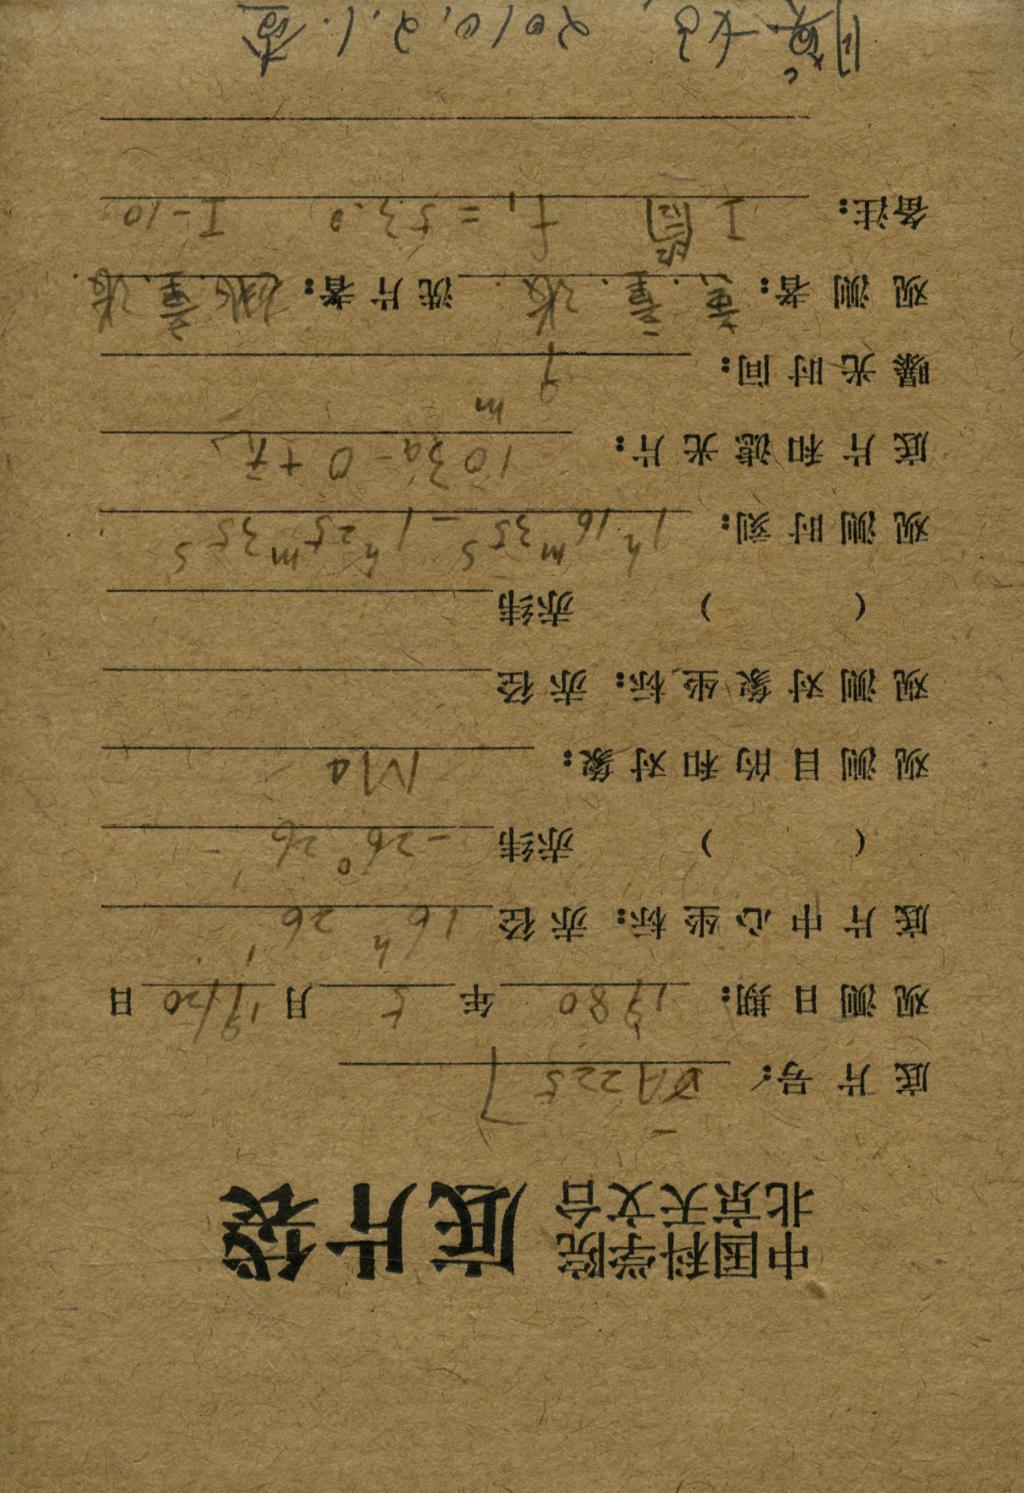 中国科学院
北京天文台
底片袋
底片号: DA2257
观测日期: 1980 年 5 月 19/20 日
底片中心坐标: 赤径 16h 26'
( ) 赤纬 -26° 26'
观测目的和对象: M4
观测对象坐标: 赤径
( ) 赤纬
观测时刻: 1h16m35s - 1h25m35s
底片和滤光片: 103a-O+无
曝光时间: 9m
观测者: 童. 张. 洗片者: 姚. 童. 张.
备注: I f1 = 53.0 I-10
2010.2.1.查